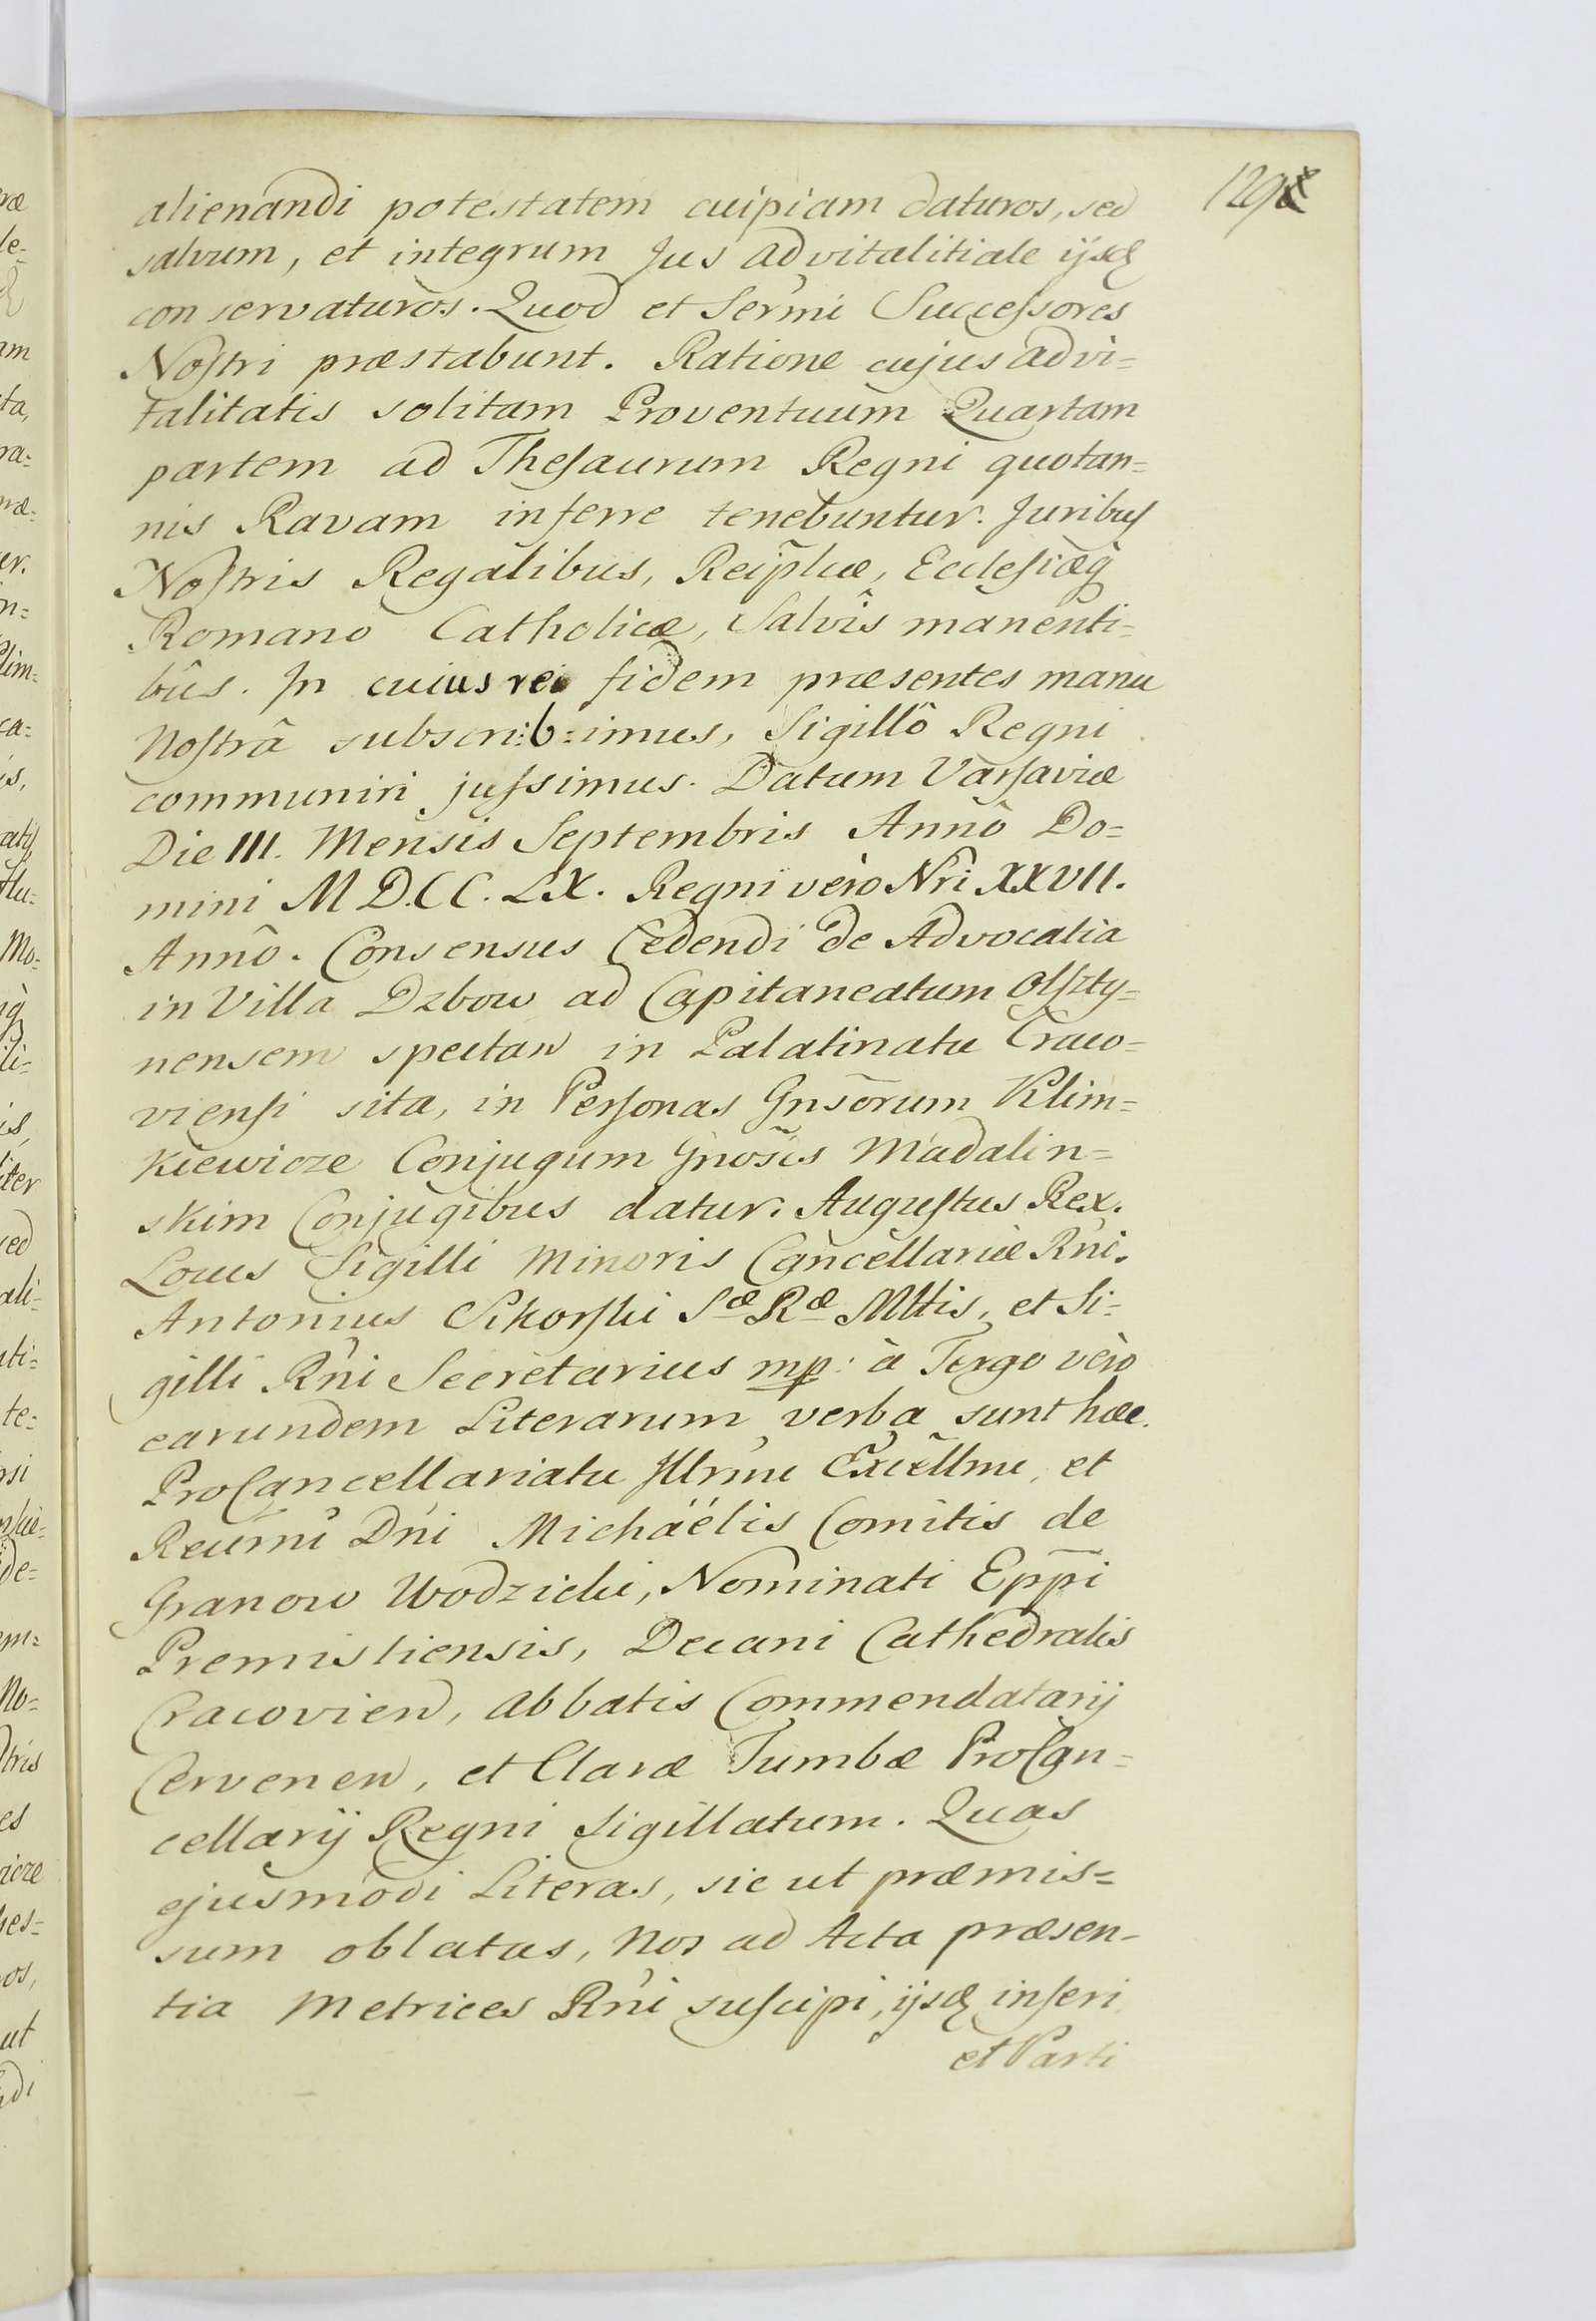 129
alienandi potestatem cuipiam daturos, sed
salvum, et integrum Jus advitalitiale ijsq
conservaturos. Quod et Sermi Successores
Nostri præstabunt. Ratione cujus advi=
talitatis solitam Proventuum Quartam
partem ad Thesaurum Regni quotan=
nis Ravam inferre tenebuntur. Juribus
Nostris Regalibus, Reiplicæ, Ecclesiæq
Romano Catholicæ, Salvîs manenti=
bûs. In cuius rei fidem præsentes manu
Nostrâ subscri:b:imus, Sigillô Regni
communiri jussimus. Datum Varsaviæ
Die III. Mensis Septembris Annô Do=
mini M D.CC. LX. Regni vero Nri XXVII.
Annô. Consensus Cedendi de Advocatia
in Villa Dzbow ad Capitaneatum Olszty=
nensem spectan in Palatinatu Craco=
viensi sita, in Personas Gnsõrum Klim=
kiewicze Conjugum Gnõsis Madalin=
skim Conjugibus datur. Augustus Rex.
Locus Sigilli Minoris Cancellariæ Rni.
Antonius Sikorski Sæ Ræ Mttis, et Si=
gilli Rni Secretarius mp: à Tergo vero
earundem Literarum verba sunt hæc.
ProCancellariatu Illrmi Excellmi, et
Reumi Dni Michäélis Comitis de
Granow Wodzicki, Nominati Eppi
Premisliensis, Decani Cathedralis
Cracovien, abbatis Commendatarij
Cervenen, et Claræ Tumbæ ProCan=
cellarij Regni Sigillatum. Quas
ejusmodi Literas, sic ut præmis=
sum oblatas, Nos ad Acta præsen-
tia Metrices Rni suscipi, ijsq inseri
et Parti